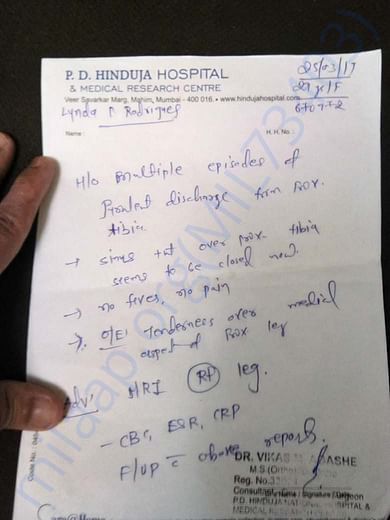 P. D. HINDUJA HOSPITAL
& MEDICAL RESEARCH CENTRE
Veer Savarkar Marg, Mahim, Mumbai - 400 016. • www.hindujahospital.com
25/03/17
Lynda Rodrigues
29 yrs/F
Name :
H. H. No. :
H/o multiple episodes of
discharge from prox.
tibia
→ sinus over prox. tibia
seems to be closed now.
→ no fever, no pain
→ O/E: Tenderness over medial
aspect of prox leg
Adv:
MRI Rt leg.
- CBC, ESR, CRP
F/UP c̄ above reports.
DR. VIKAS M. AGASHE
M.S.(Ortho)
Reg. No.
Consultant Surgeon
Dr's Name / Signature / Code
P. D. HINDUJA NATIONAL HOSPITAL &
MEDICAL RESEARCH
Code No.
milaap.org